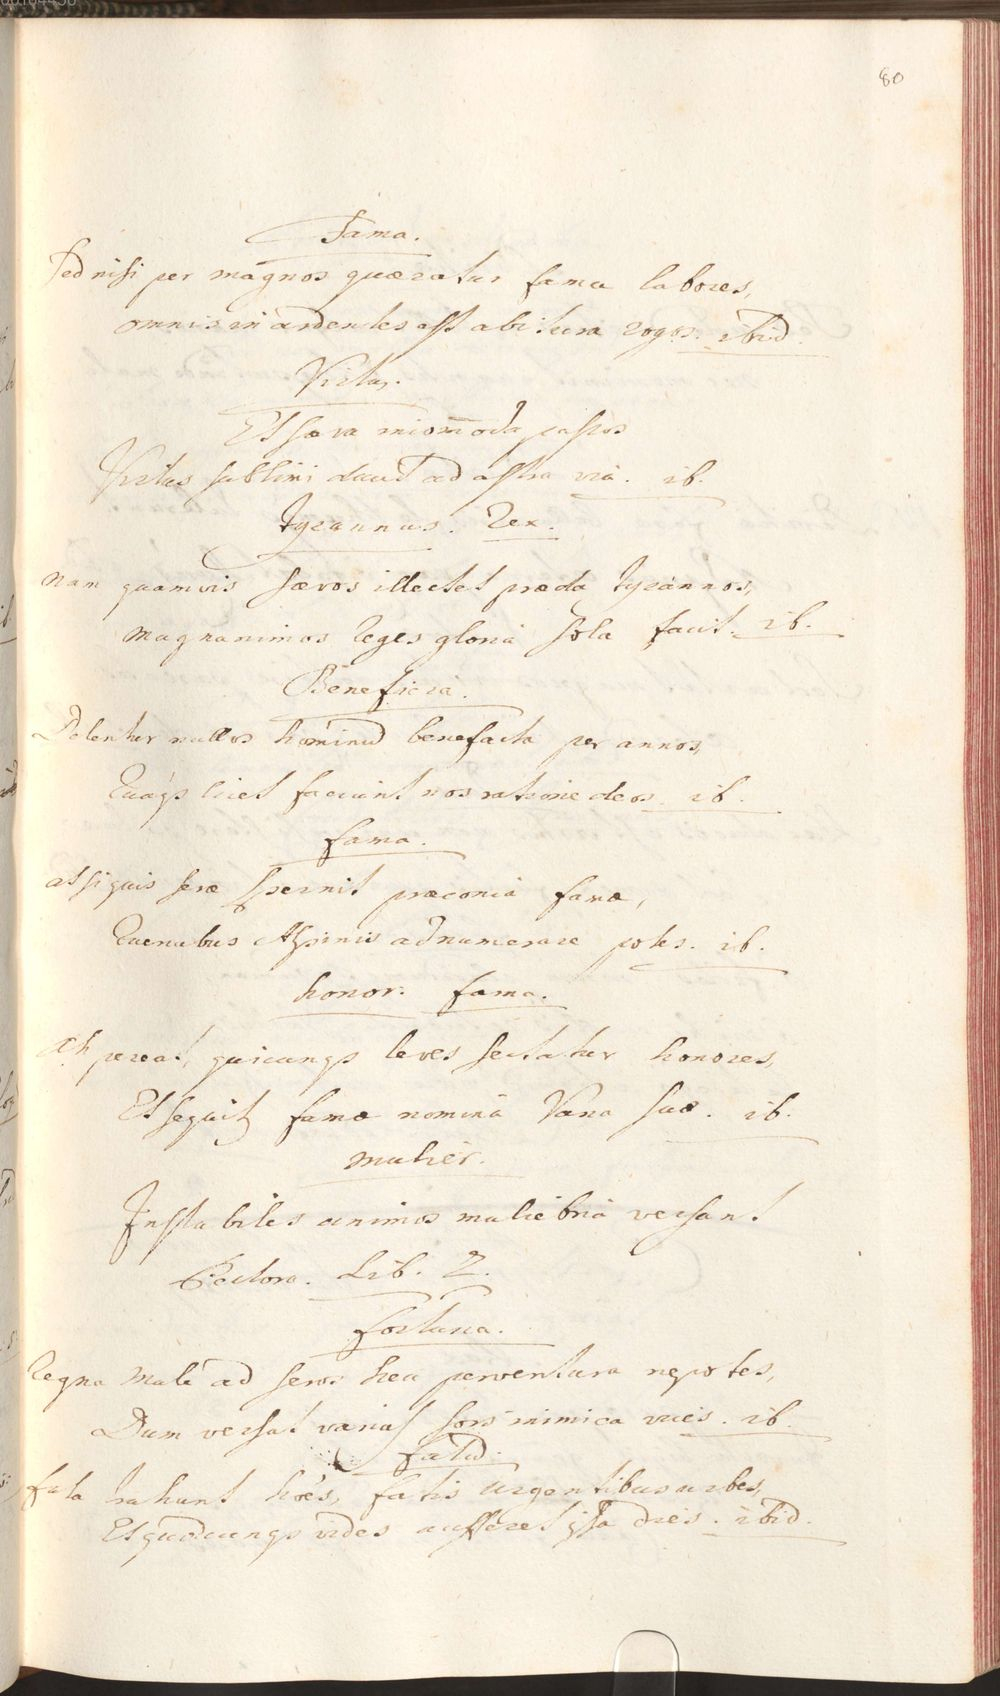 80
Fama.
Sed nisi per magnos quæratur fama labores,
omnis in ardentes est abitura rogos. ibid.
Virtus.
Et sæva incom̄oda passos
Virtus sublimi ducit ad astra via. ib.
Tyrannus. Rex.
Nam quamvis sævos illectet præda tyrannos,
magnanimos Reges gloria sola facit. ib.
Beneficia.
Delentur nullos hominū benefacta per annos,
Quaqȝ licet faciunt nos ratione deos. ib.
fama.
at si quis seræ spernit præconia famæ,
Quenubus Alpinis adnumerare potes. ib.
honor. fama.
Ah pereat, quicunqȝ leves sectatur honores,
Et sequitȝ famæ nomina Vana suæ. ib.
mulier.
Instabiles animos muliebria versant
Pectora. Lib. 2.
fortuna.
Regna male ad seros heu perventura nepotes,
Dum versat varias sors inimica vices. ib.
fatū.
fata trahunt hoēs, fatis urgentibus urbes,
Et quodcunqȝ vides auferet ista dies. ibid.